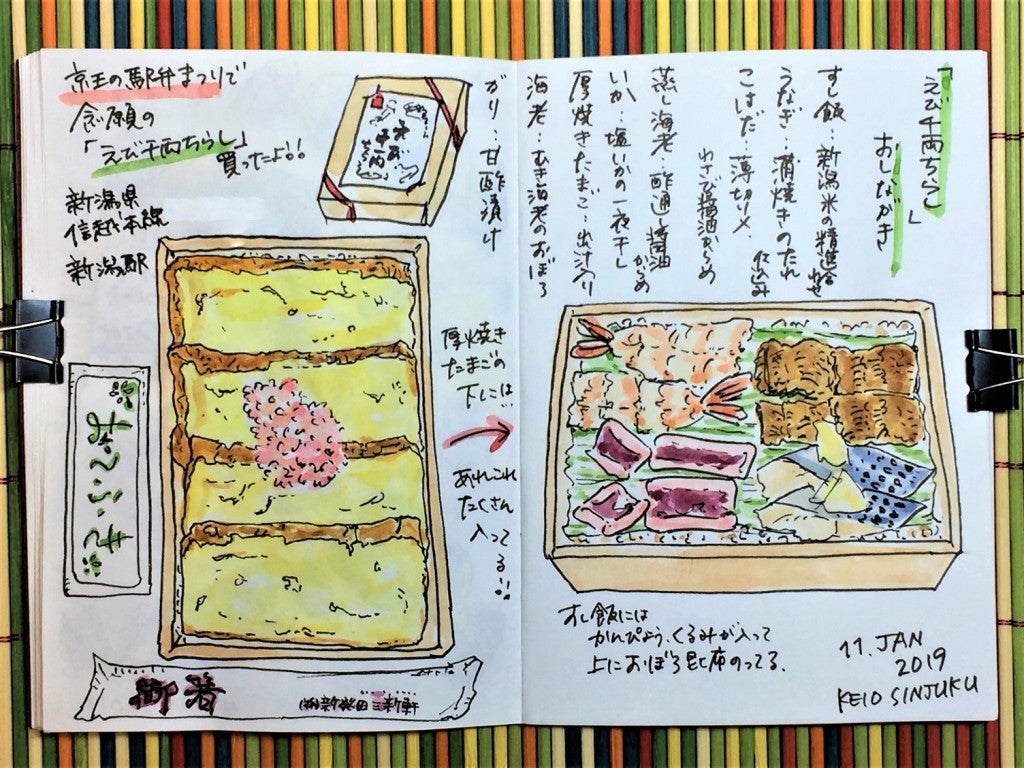 京王の駅弁まつりで
念願の
「えび千両ちらし」
買ったよ!!
新潟県
信越本線
新潟駅
おてふき
厚焼き
たまごの
下には…
あれこれ
たくさん
入ってる…
御箸
㈱新発田三新軒
「えび千両ちらし」
おしながき
すし飯…新潟米の精進合わせ
うなぎ…蒲焼きのたれ仕込み
こはだ…薄切り〆、
わさび醤油からめ
蒸し海老…酢通し醤油からめ
いか…塩いかの一夜干し
厚焼きたまご…出汁入り
海老…むき海老のおぼろ
ガリ…甘酢漬け
すし飯には
かんぴょう、くるみが入って
上におぼろ昆布のってる。
11. JAN
2019
KEIO SINJUKU